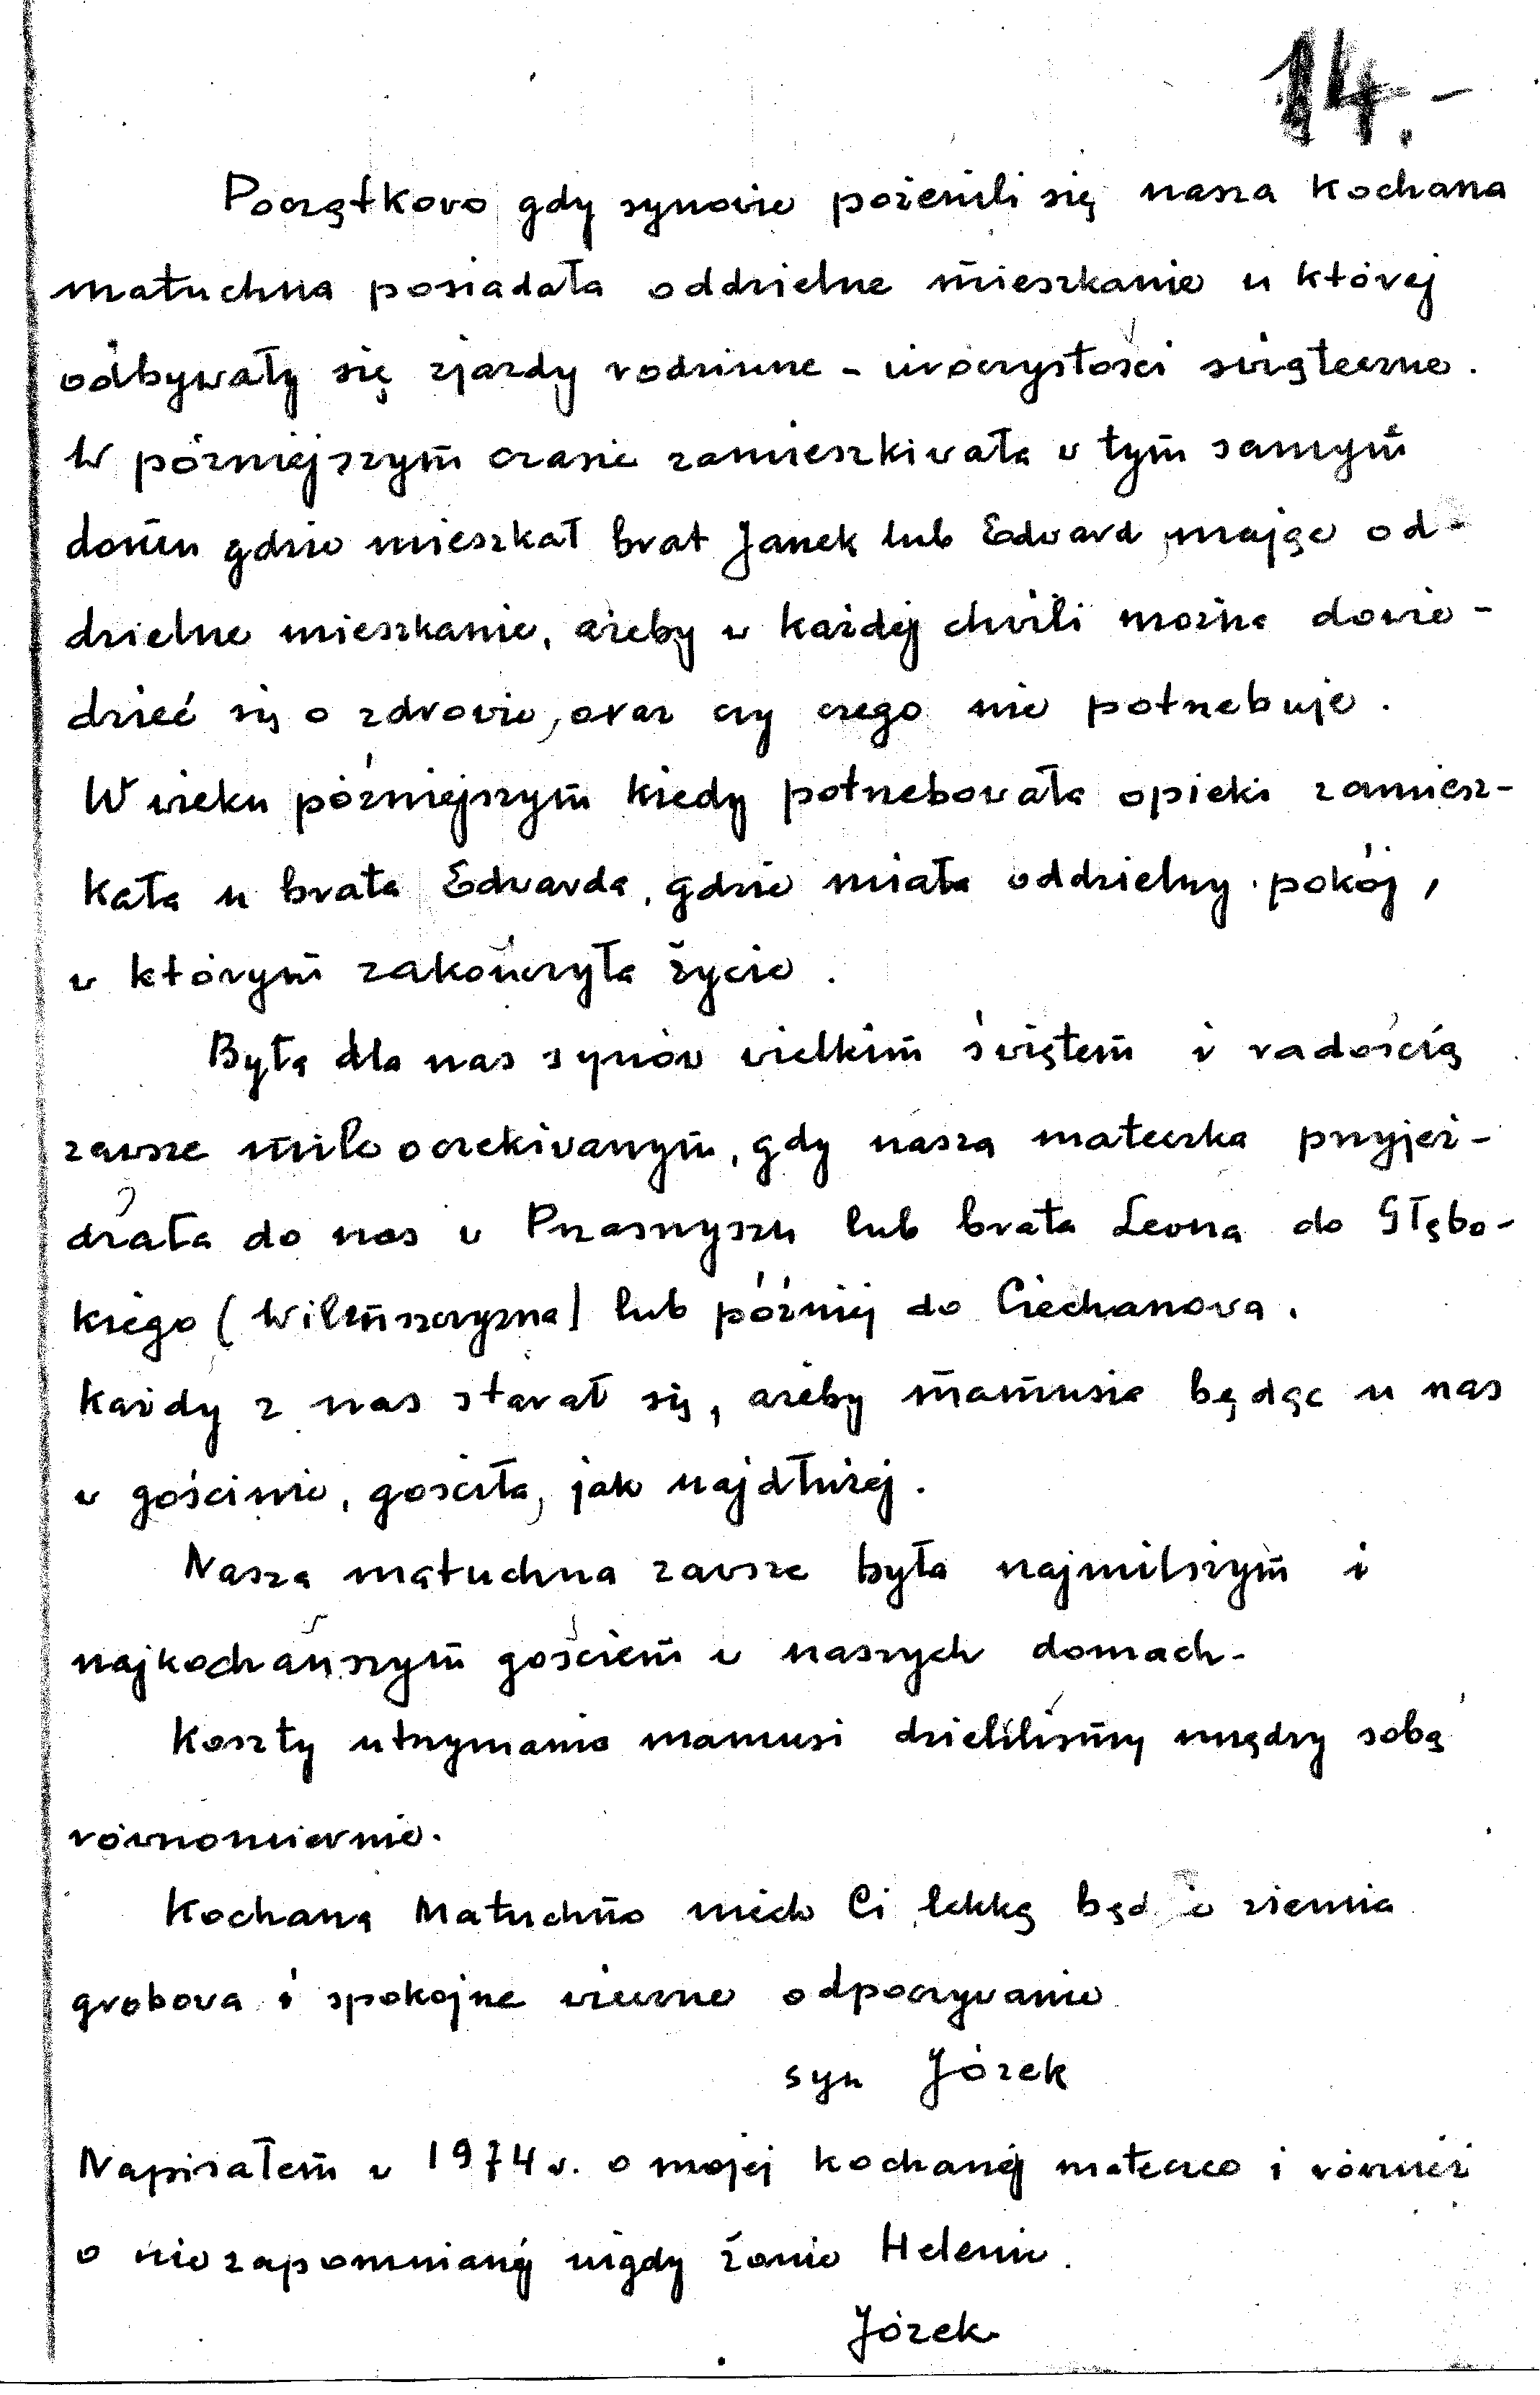 14.-
Początkowo gdy synowie pożenili się nasza Kochana
matuchna posiadała oddzielne mieszkanie u której
odbywały się zjazdy rodzinne - uroczystości świąteczne.
W póżniejszym czasie zamieszkiwała w tym samym
domu gdzie mieszkał brat Janek lub Edward mając od-
dzielne mieszkanie, ażeby w każdej chwili można dowie-
dzieć się o zdrowie, oraz czy czego nie potrzebuje.
W wieku póżniejszym kiedy potrzebowała opieki zamiesz-
kała u brata Edwarda, gdzie miała oddzielny pokój,
w którym zakończyła życie.
Było dla nas synów wielkim świętem i radością
zawsze mile oczekiwanym, gdy nasza mateczka przyjeż-
dżała do nas w Przasnyszu lub brata Leona do Głębo-
kiego (Wileńszczyzna) lub póżniej do Ciechanowa.
Każdy z nas starał się, ażeby mamusia będąc u nas
w gościnie, gościła, jak najdłużej.
Nasza matuchna zawsze była najmilszym i
najkochańszym gościem w naszych domach.
Koszty utrzymania mamusi dzieliliśmy między sobą
równomiernie.
Kochana Matuchno niech Ci lekką będzie ziemia
grobowa i spokojne wieczne odpoczywanie
syn Józek
Napisałem w 1974 r. o mojej kochanej mateczce i również
o niezapomnianej nigdy żonie Helenie.
Józek